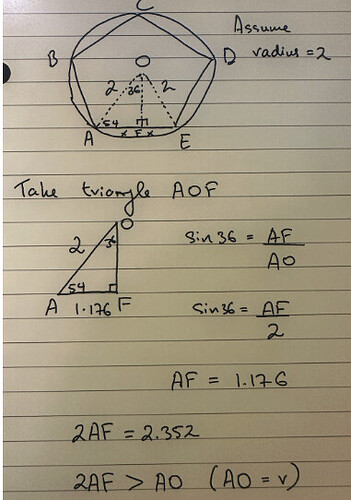 C
Assume
radius = 2
B
O
D
2
36
2
54
A
x F x
E
Take triangle AOF
O
2
36
54
A 1.176 F
sin36 = AF
AO
sin36 = AF
2
AF = 1.176
2AF = 2.352
2AF > AO (AO = r)